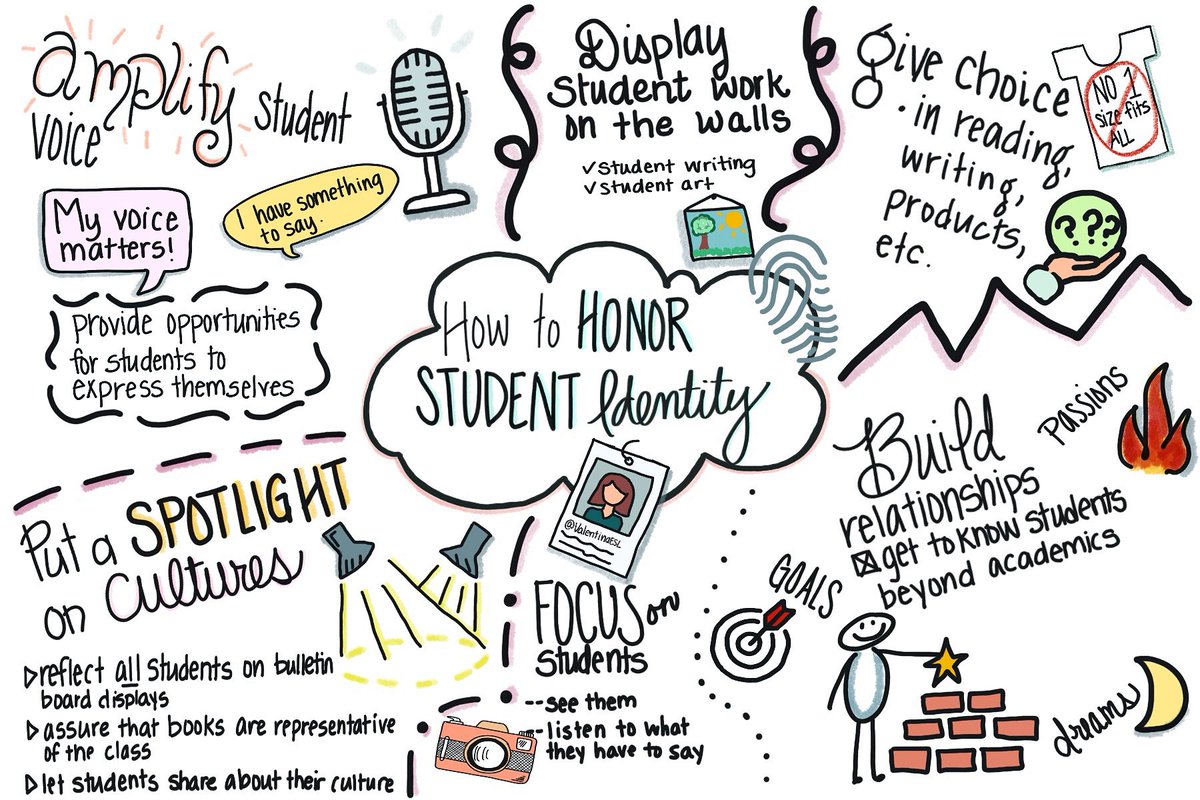 amplify student
voice
My voice
matters!
I have something
to say.
provide opportunities
for students to
express themselves
Display
student work
on the walls
✓student writing
✓student art
give choice
· in reading,
writing,
products,
etc.
NO 1
size fits
ALL
???
How to HONOR
STUDENT Identity
@ValentinaESL
Put a SPOTLIGHT
on Cultures
▷reflect all students on bulletin
board displays
▷assure that books are representative
of the class
▷let students share about their culture
FOCUS on
students
--see them
-listen to what
they have to say
Build
relationships
☒get to know students
beyond academics
Passions
GOALS
dreams